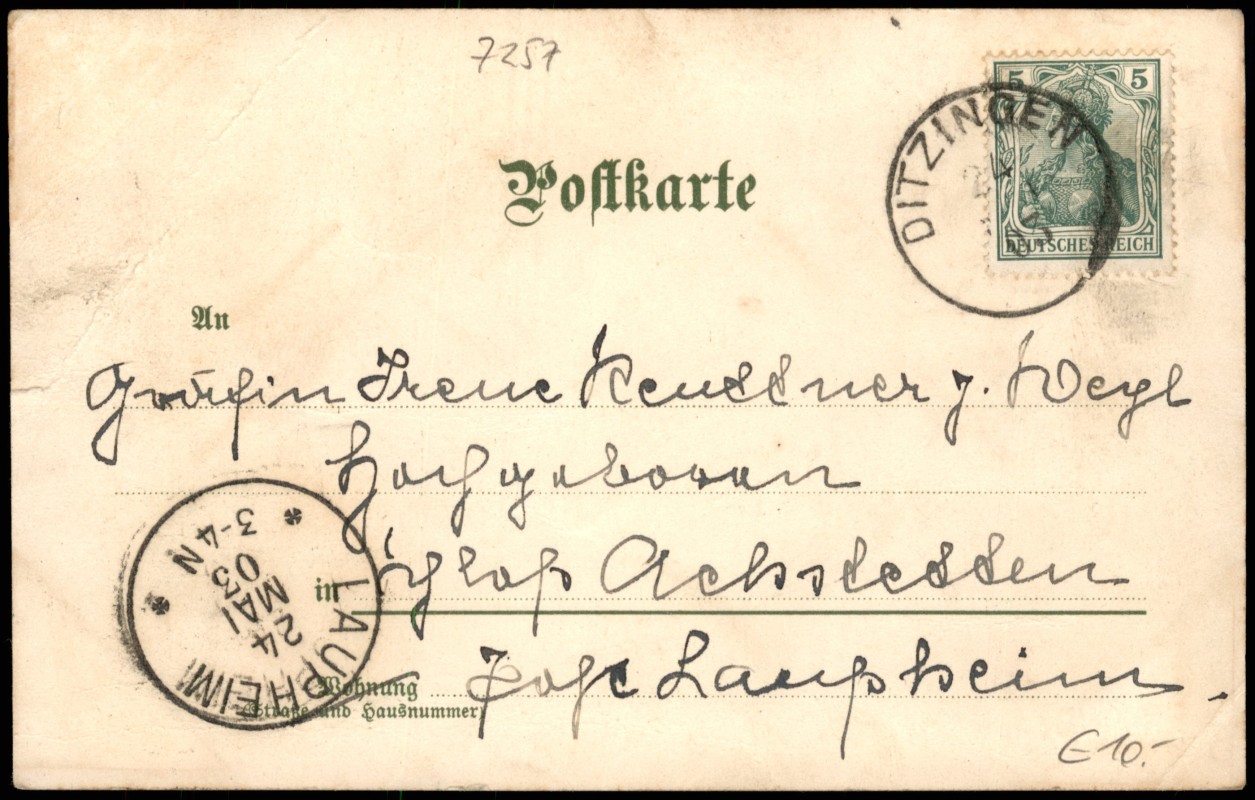 7257
Postkarte
5 5
DEUTSCHES REICH
DITZINGEN
24
An
Gräfin Irene Reuttner z. Weyl
Hochgeboren
in Schloß Achstetten
Wohnung Post Laupheim.
(Straße und Hausnummer)
LAUPHEIM
24
MAI
03
3-4 N
€ 10.-